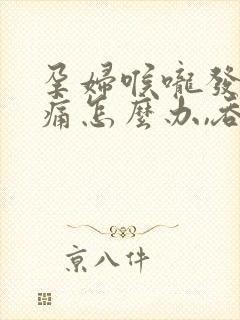 孕婦喉嚨發
痛怎麼办,吞
京八件